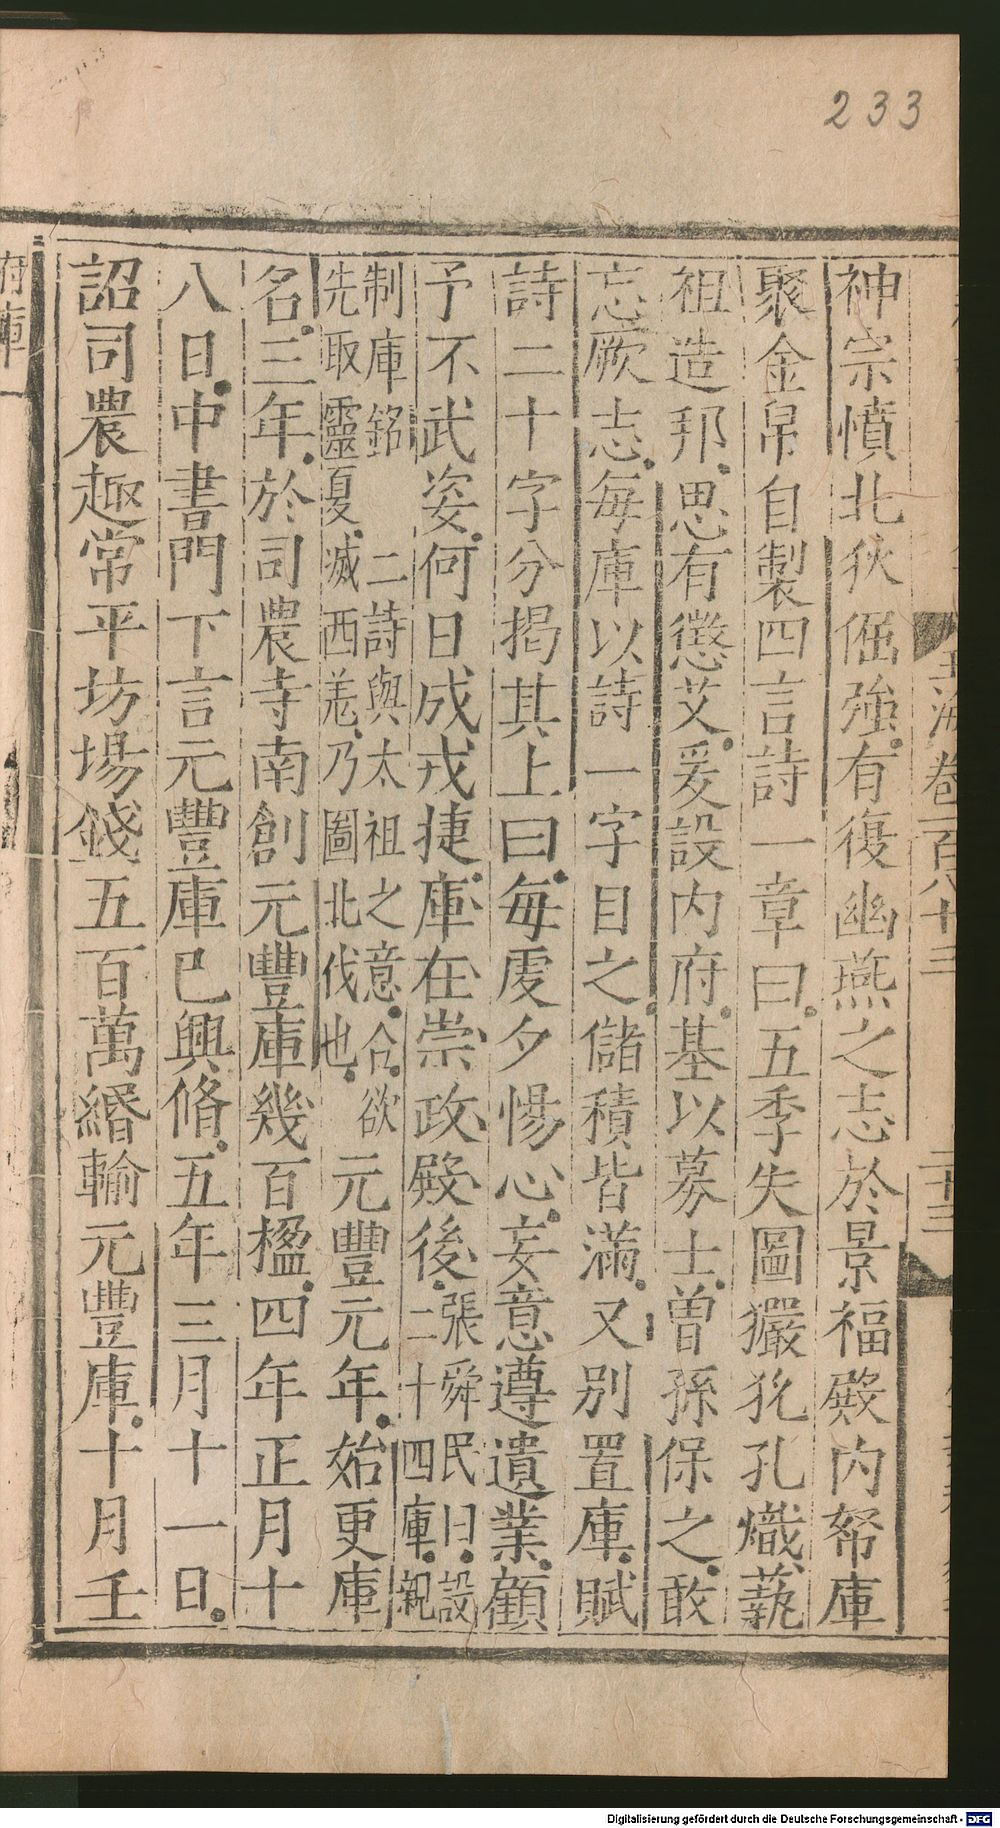 233
玉海卷一百八十三
二十三
神宗憤北狄倔強有復幽燕之志於景福殿內帑庫
聚金帛自製四言詩一章曰五季失圖玁狁孔熾蓺
祖造邦思有懲艾爰設內府基以募士曾孫保之敢
忘厥志每庫以詩一字目之儲積皆滿又別置庫賦
詩二十字分揭其上曰每虔夕惕心妄意遵遺業顧
予不武姿何日成戎捷庫在崇政殿後張舜民曰設二十四庫親
制庫銘二詩與太祖之意合欲先取靈夏滅西羌乃圖北伐也元豐元年始更庫
名三年於司農寺南創元豐庫幾百楹四年正月十
八日中書門下言元豐庫已興脩五年三月十一日
詔司農趣常平坊場錢五百萬緡輸元豐庫十月壬
府庫一
Digitalisierung gefördert durch die Deutsche Forschungsgemeinschaft - DFG